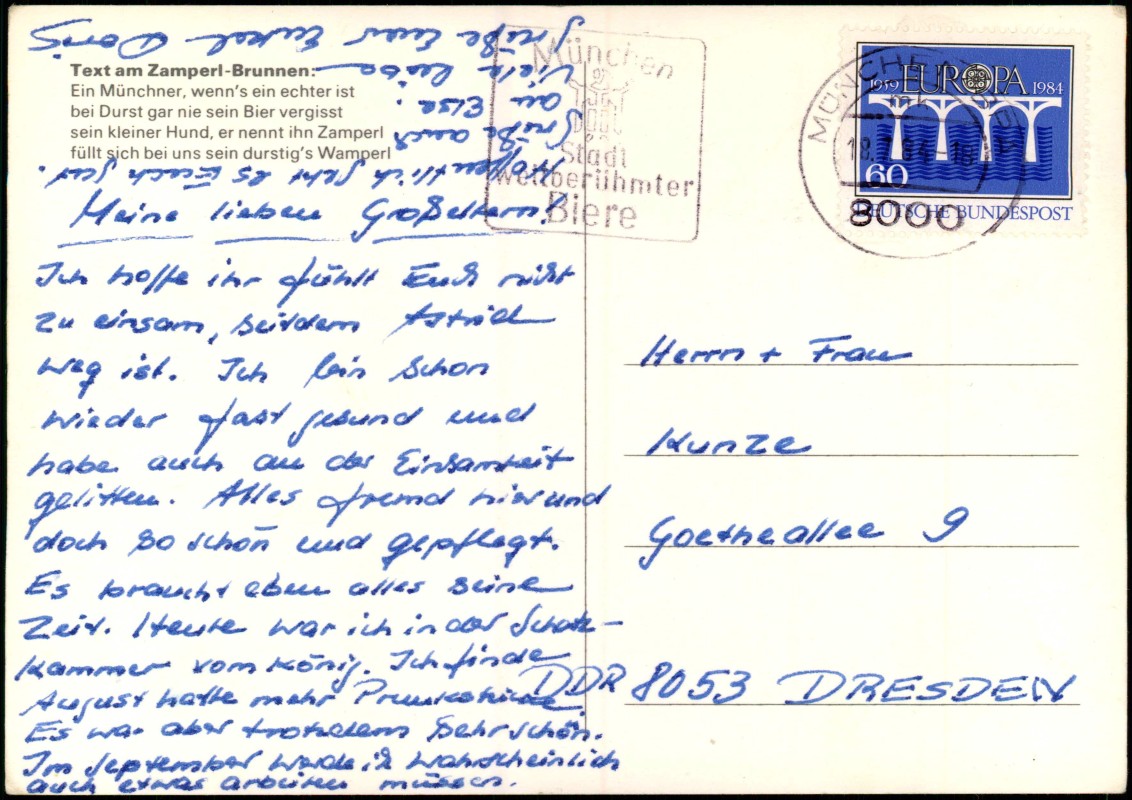 Text am Zamperl-Brunnen:
Ein Münchner, wenn's ein echter ist
bei Durst gar nie sein Bier vergisst
sein kleiner Hund, er nennt ihn Zamperl
füllt sich bei uns sein durstig's Wamperl
München
Stadt
weltberühmter
Biere
MÜNCHEN
18. 84-18
8000
1959 EUROPA 1984
60
DEUTSCHE BUNDESPOST
Meine lieben Großeltern!
Ich hoffe ihr fühlt Euch nicht
zu einsam, seitdem Astrid
weg ist. Ich bin schon
wieder fast gesund und
habe auch an der Einsamkeit
gelitten. Alles fremd hier und
doch so schön und gepflegt.
Es braucht eben alles seine
Zeit. Heute war ich in der Schatz-
kammer vom König. Ich finde
August hatte mehr Prunkstücke.
Es war aber trotzdem sehr schön.
Im September werde ich wahrscheinlich
auch etwas arbeiten müssen.
Hoffentlich geht es Euch gut.
Grüße auch
an Elsa.
Viele liebe
Grüße Euer Enkel Doris
Herrn + Frau
Kunze
Goetheallee 9
DDR 8053 DRESDEN